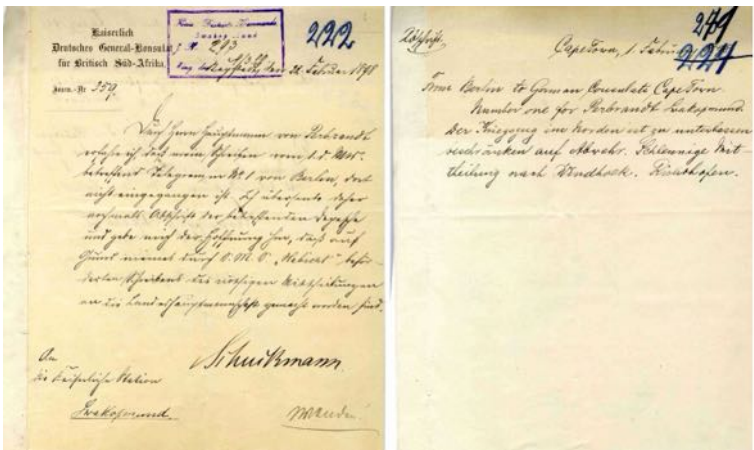 Kaiserlich
Deutsches General-Konsulat
für Britisch Süd-Afrika.
Journ.-Nr 359.
J. N. 293
222
Kapstadt, den 22. Februar 1898
Durch Herrn Hauptmann von Perbrandt
erfahre ich, daß mein Schreiben vom 1. d. Mts.
betreffend Telegramm Nr. 1 von Berlin, dort
nicht eingegangen ist. Ich übersende daher
nochmals Abschrift der betreffenden Depesche
und gebe mich der Hoffnung hin, daß auf
Grund meines durch S. M. S. „Habicht" beför-
derten Schreibens die nöthigen Mittheilungen
an die Landeshauptmannschaft gemacht worden sind.
Schuckmann.
An
die Kaiserliche Station
Swakopmund.
249
224
Abschrift.
Cape Town, 1. Februar
From Berlin to German Consulate Cape Town.
Number one for Perbrandt Swakopmund.
Der Kriegszug im Norden ist zu unterlassen
beschränken auf Abwehr. Schleunige Mit-
theilung nach Windhoek. Richthofen.